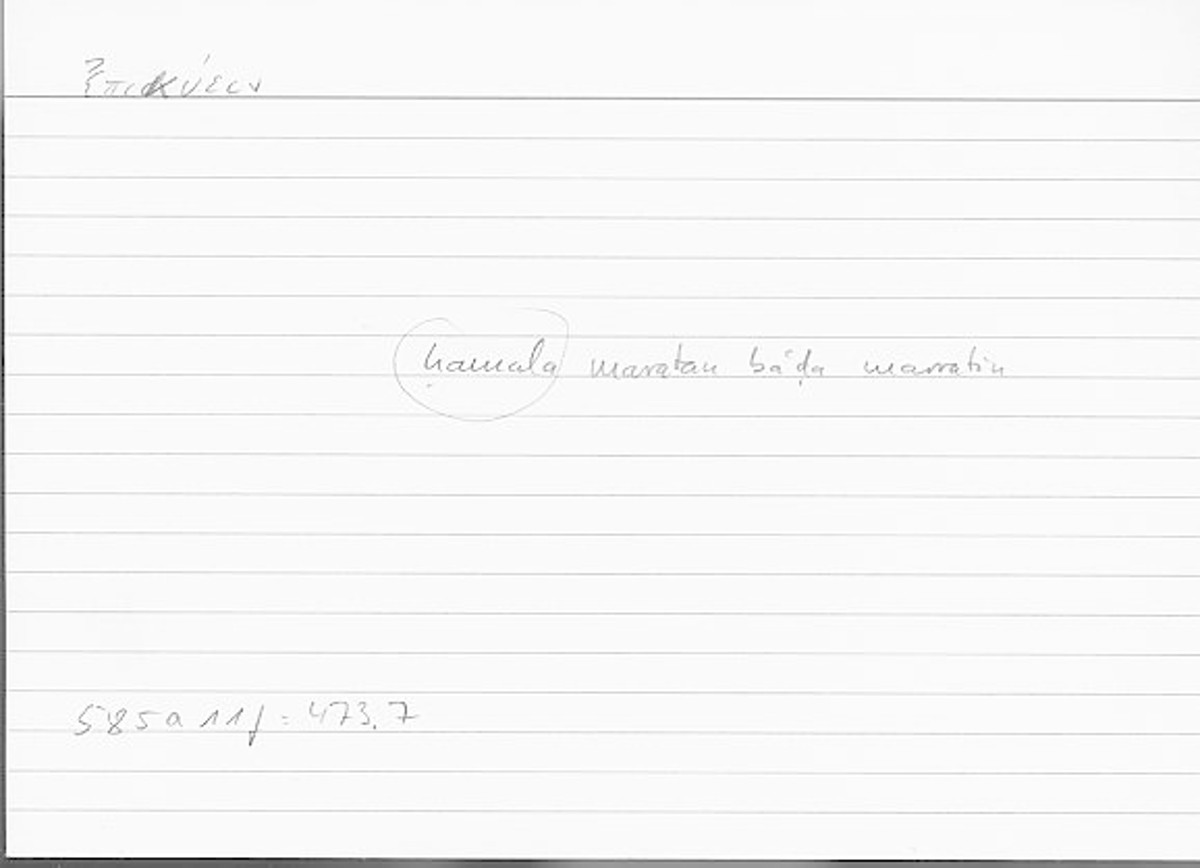 ἐπικύειν
ḥamala maratan baʿḍa marratin
585a 11f : 473,7